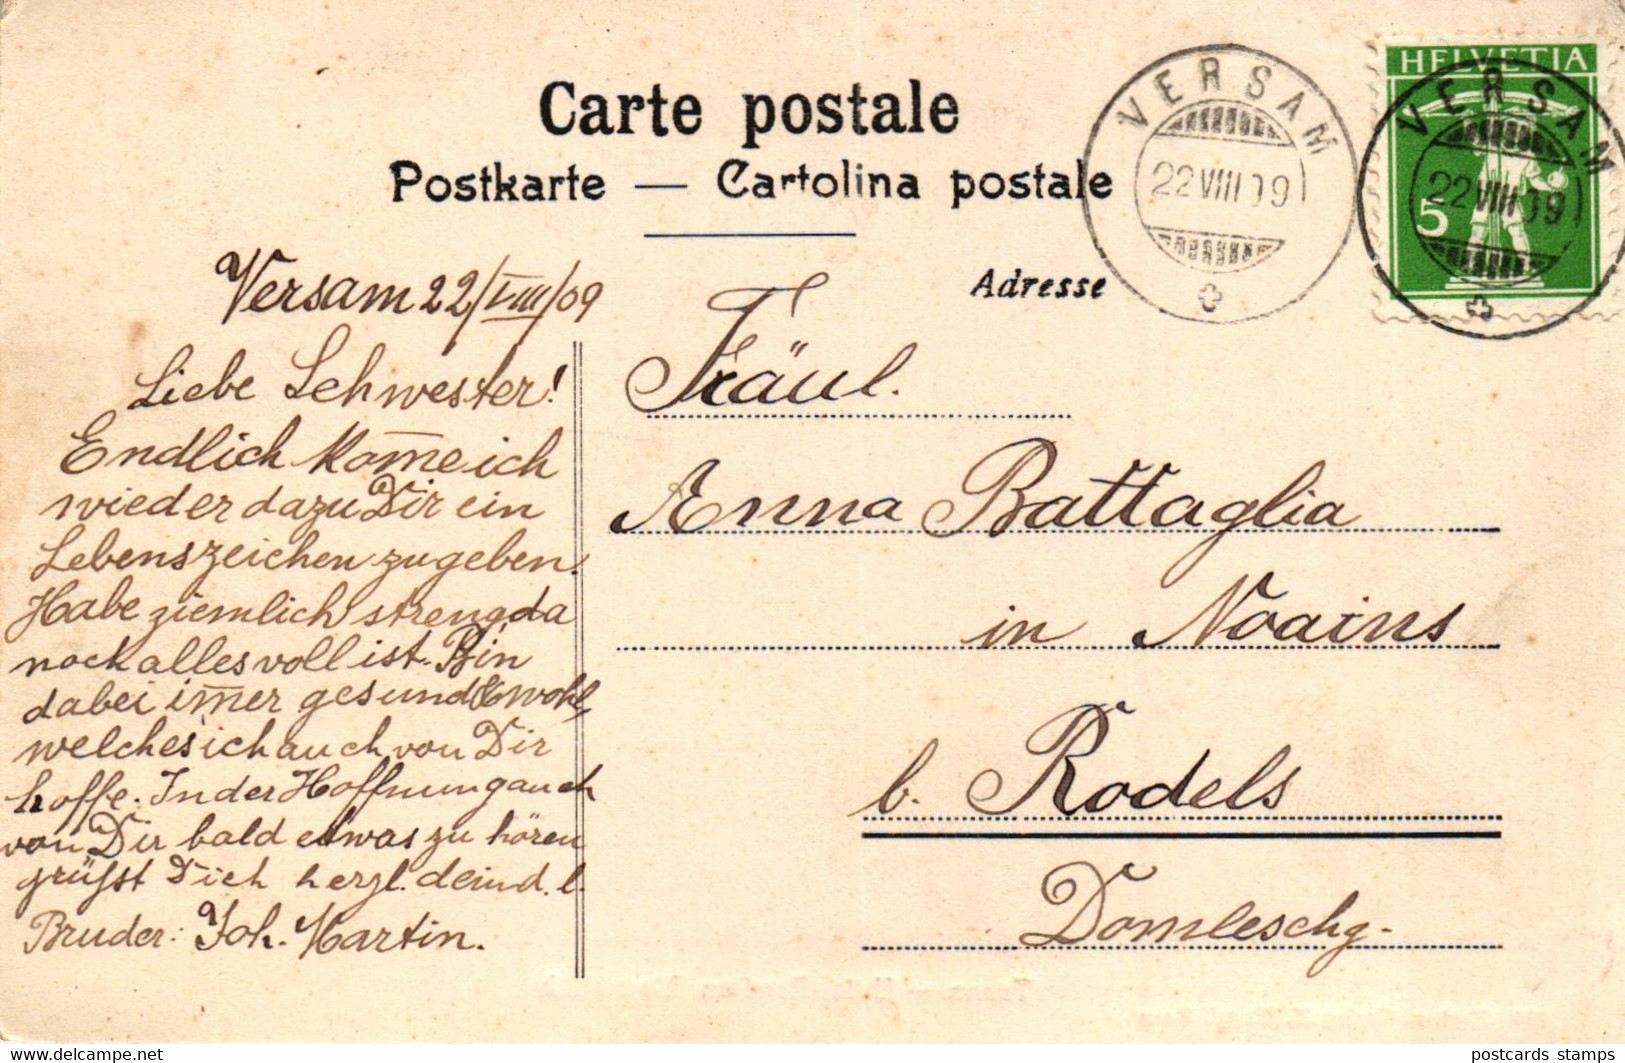 Carte postale
Postkarte — Cartolina postale
Adresse
HELVETIA
5
VERSAM
22 VIII 09
VERSAM
22 VIII 09
Versam 22/VIII/09
Liebe Schwester!
Endlich kom̅e ich
wieder dazu Dir ein
Lebenszeichen zu geben.
Habe ziemlich streng da
noch alles voll ist. Bin
dabei im̅er gesund & wohl,
welches ich auch von Dir
hoffe. In der Hoffnung auch
von Dir bald etwas zu hören
grüsst Dich herzl. dein d. l.
Bruder: Joh. Martin.
Fräul.
Anna Battaglia
in Noains
b. Rodels
Domleschg.
www.delcampe.net
postcards_stamps